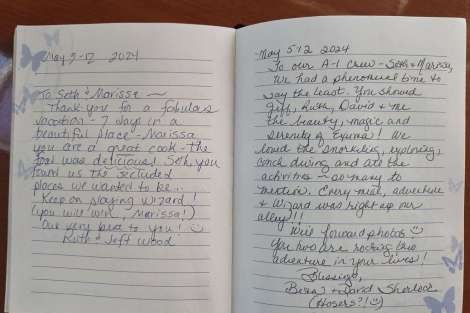 May 5-12 2024
To Seth & Marissa ~
Thank you for a fabulous
vacation - 7 days in a
beautiful place - Marissa
you are a great cook - the
food was delicious! Seth, you
found us the secluded
places we wanted to be...
Keep on playing Wizard!
(you will win, Marissa!)
Our very best to you! ☺
Ruth & Jeff Wood
May 5-12 2024
To our A-1 Crew - Seth & Marissa,
We had a phenomenal time to
say the least. You showed
Jeff, Ruth, David & me
the beauty, magic and
serenity of Exuma! We
loved the snorkeling, exploring,
conch diving and all the
activities - so many to
mention. Every meal, adventure
& Wizard was right up our
alley!!!
We'll forward photos ☺
You two are rocking this
adventure in your lives!
Blessings,
& David Sherlock
(Hosers?! ☺)